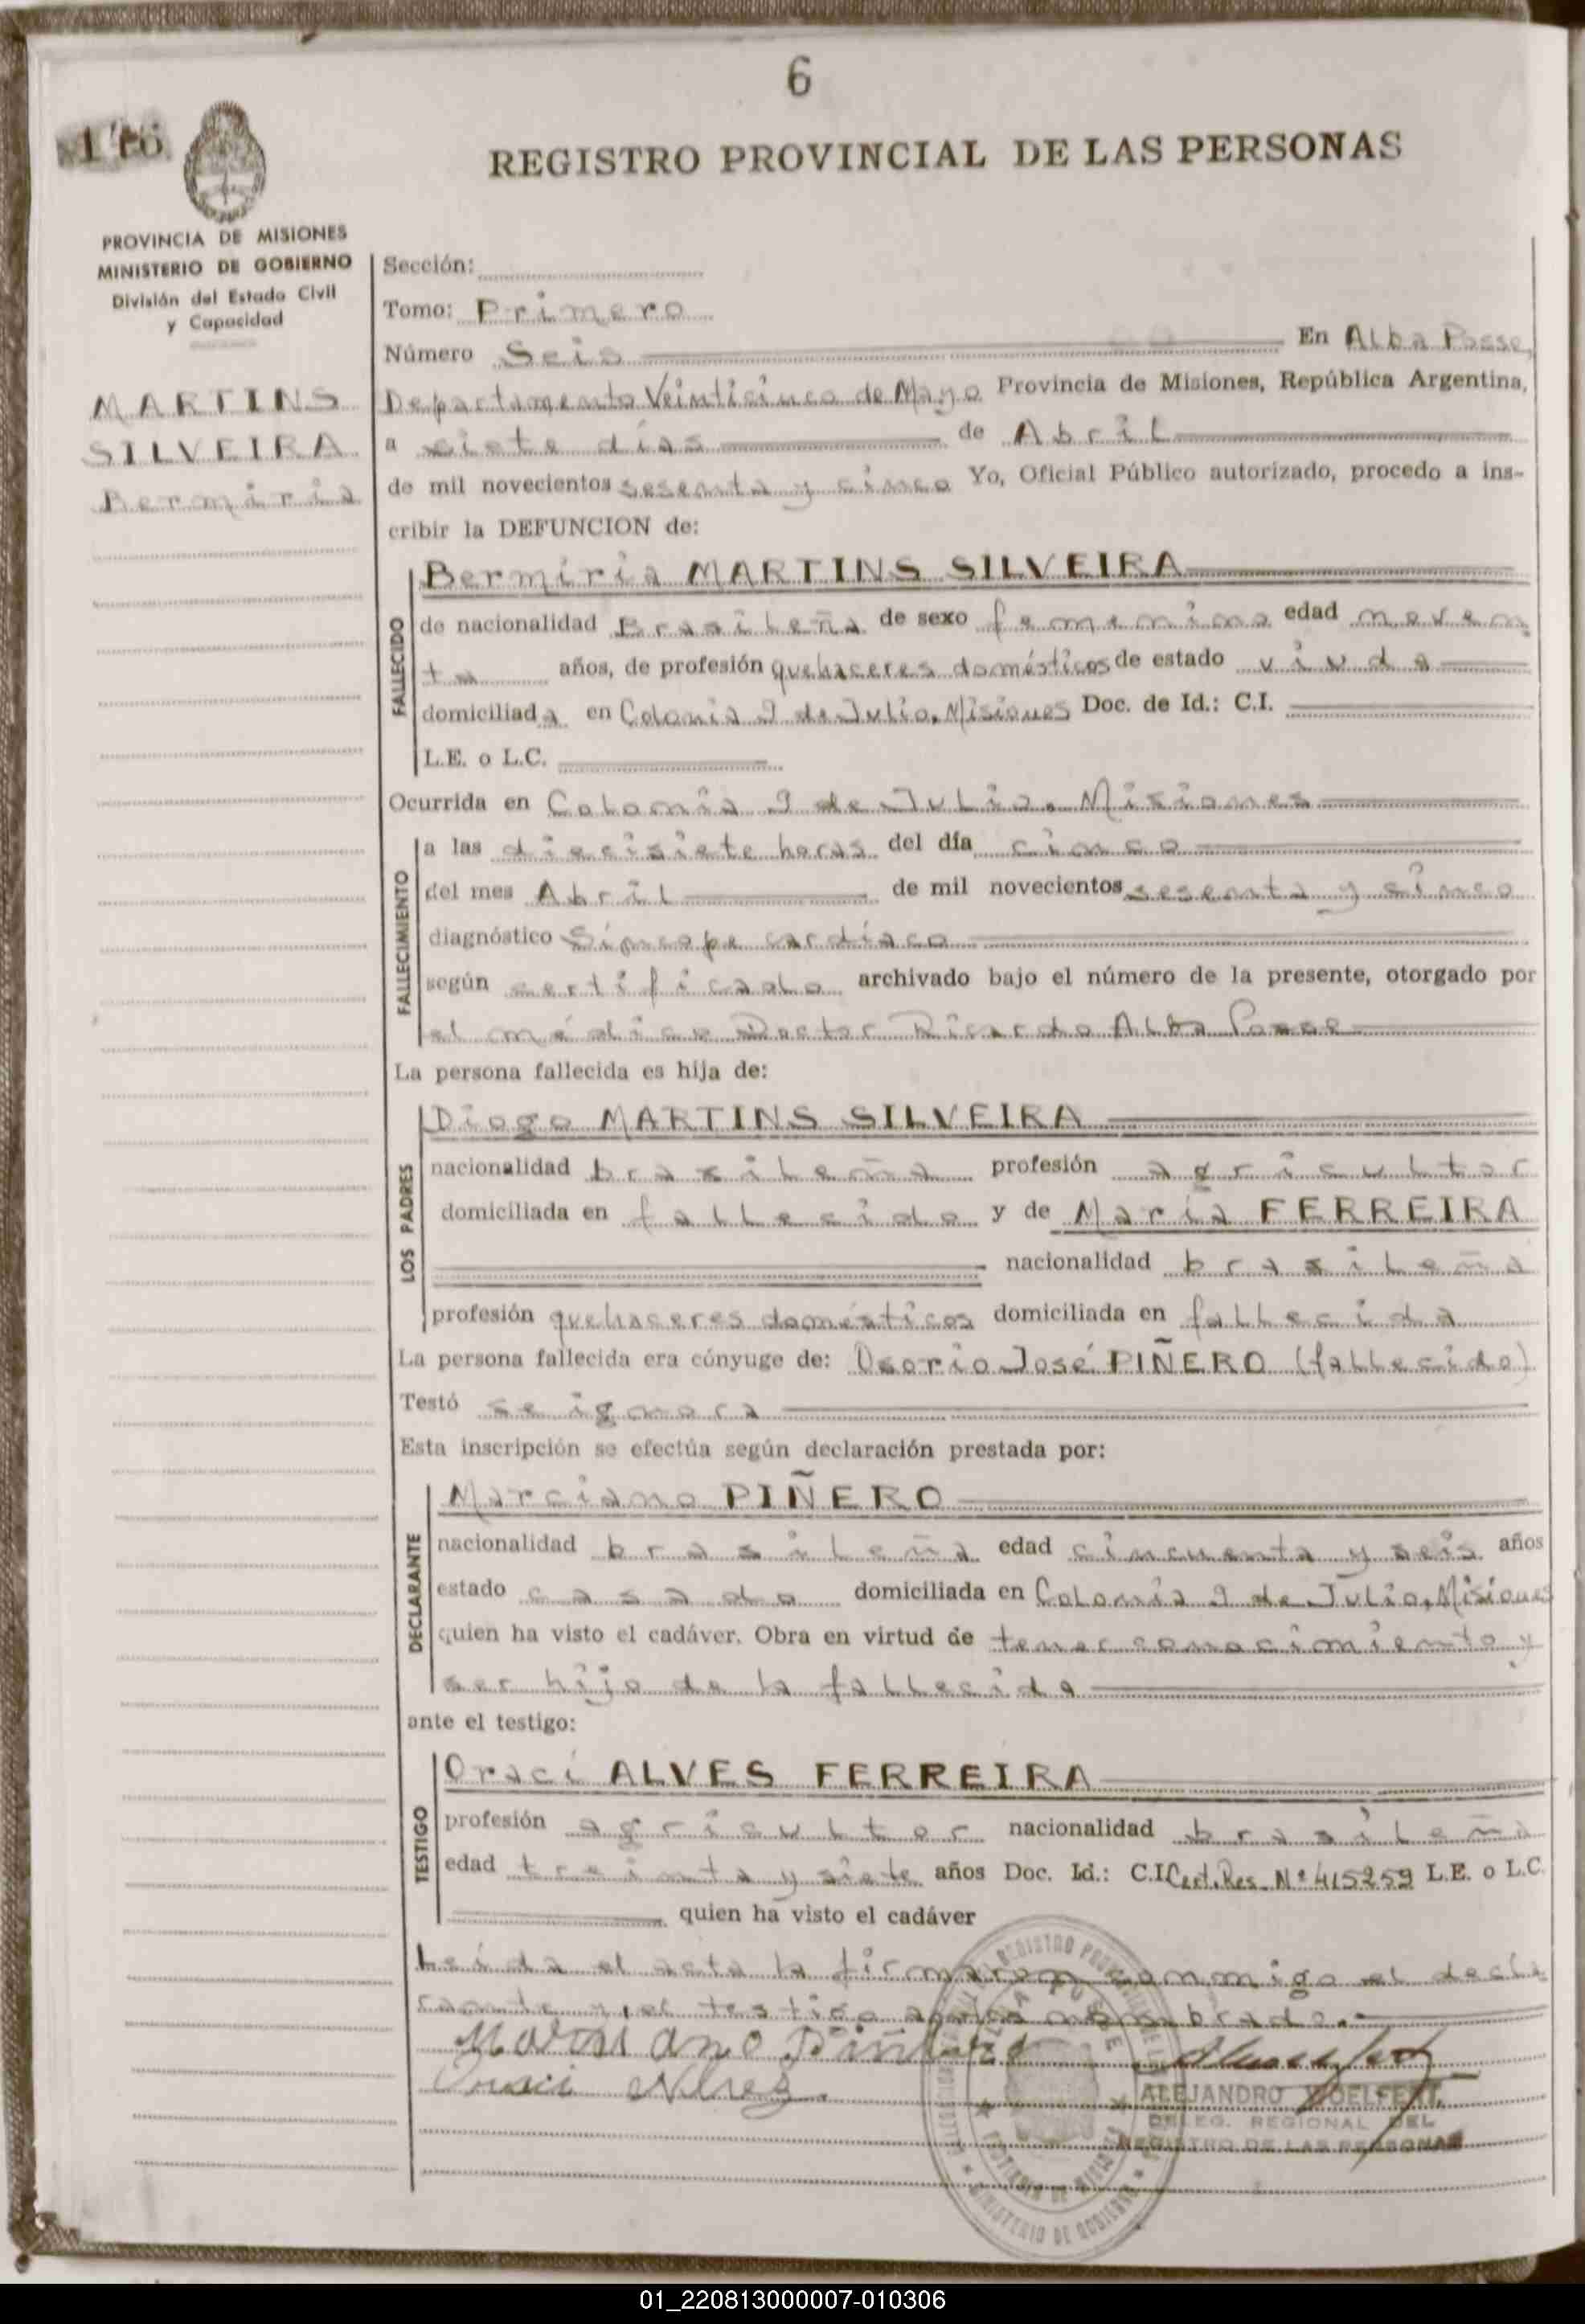 6
REGISTRO PROVINCIAL DE LAS PERSONAS
PROVINCIA DE MISIONES
MINISTERIO DE GOBIERNO
División del Estado Civil
y Capacidad
MARTINS
SILVEIRA
Bermiria
Sección:
Tomo: Primero
Número Seis En Alba Posse,
Departamento Veinticinco de Mayo Provincia de Misiones, República Argentina,
a siete días de Abril
de mil novecientos sesenta y cinco Yo, Oficial Público autorizado, procedo a ins-
cribir la DEFUNCION de:
FALLECIDO
Bermiria MARTINS SILVEIRA
de nacionalidad Brasileña de sexo femenino edad noven
ta años, de profesión quehaceres domésticos de estado viuda
domiciliada en Colonia 9 de Julio, Misiones Doc. de Id.: C.I.
L.E. o L.C.
Ocurrida en Colonia 9 de Julio, Misiones
FALLECIMIENTO
a las diecisiete horas del día cinco
del mes Abril de mil novecientos sesenta y cinco
diagnóstico Síncope cardíaco
según certificado archivado bajo el número de la presente, otorgado por
el médico Doctor Ricardo Alba Posse
La persona fallecida es hija de:
LOS PADRES
Diogo MARTINS SILVEIRA
nacionalidad brasileña profesión agricultor
domiciliada en fallecido y de María FERREIRA
nacionalidad brasileña
profesión quehaceres domésticos domiciliada en fallecida
La persona fallecida era cónyuge de: José PIÑERO (fallecido)
Testó se ignora
Esta inscripción se efectúa según declaración prestada por:
DECLARANTE
Marciano PIÑERO
nacionalidad brasileña edad cincuenta y seis años
estado casado domiciliada en Colonia 9 de Julio, Misiones
quien ha visto el cadáver. Obra en virtud de tener conocimiento y
ser hijo de la fallecida
ante el testigo:
TESTIGO
Oraci ALVES FERREIRA
profesión agricultor nacionalidad brasileña
edad treinta y siete años Doc. Id.: C.I. Cert. Res. Nº 415259 L.E. o L.C.
quien ha visto el cadáver
Leída el acta la firmaron conmigo el decla
rante y el testigo nombrado.
Marciano Piñero
Oraci Alves
ALEJANDRO
DELEG. REGIONAL DEL
REGISTRO DE LAS PERSONAS
MINISTERIO DE GOBIERNO
01_220813000007-010306